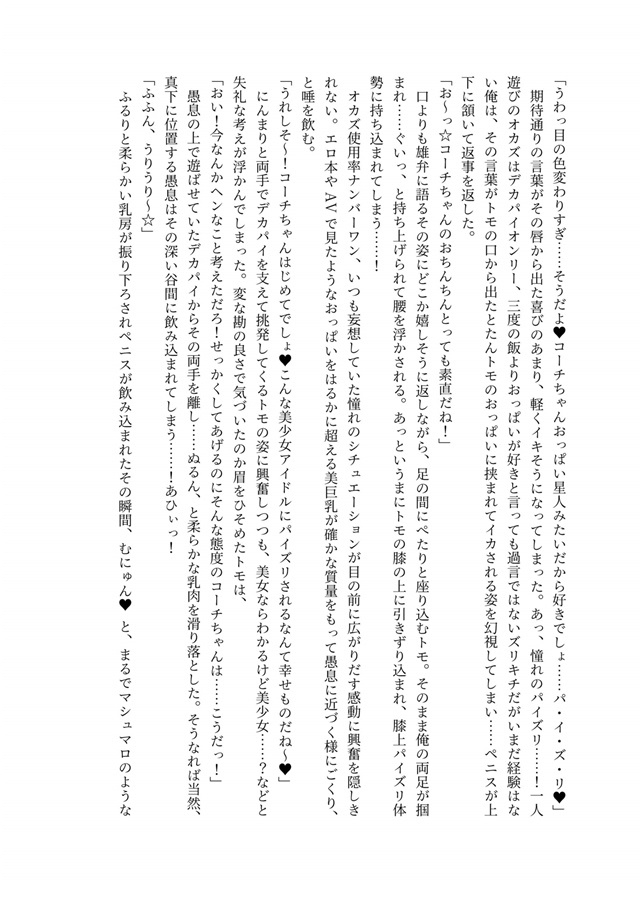 「うわっ目の色変わりすぎ……そうだよ♥コーチちゃんおっぱい星人みたいだから好きでしょ……パ・イ・ズ・リ♥」
　期待通りの言葉がその唇から出た喜びのあまり、軽くイキそうになってしまった。あっ、憧れのパイズリ……！一人
遊びのオカズはデカパイオンリー、三度の飯よりおっぱいが好きと言っても過言ではないズリキチだがいまだ経験はな
い俺は、その言葉がトモの口から出たとたんトモのおっぱいに挟まれてイカされる姿を幻視してしまい……ペニスが上
下に頷いて返事を返した。
「お～っ☆コーチちゃんのおちんちんとっても素直だね！」
　口よりも雄弁に語るその姿にどこか嬉しそうに返しながら、足の間にぺたりと座り込むトモ。そのまま俺の両足が掴
まれ……ぐいっ、と持ち上げられて腰を浮かされる。あっというまにトモの膝の上に引きずり込まれ、膝上パイズリ体
勢に持ち込まれてしまう……！
　オカズ使用率ナンバーワン、いつも妄想していた憧れのシチュエーションが目の前に広がりだす感動に興奮を隠しき
れない。エロ本やAVで見たようなおっぱいをはるかに超える美巨乳が確かな質量をもって愚息に近づく様にごくり、
と唾を飲む。
「うれしそ～！コーチちゃんはじめてでしょ♥こんな美少女アイドルにパイズリされるなんて幸せものだね～♥」
　にんまりと両手でデカパイを支えて挑発してくるトモの姿に興奮しつつも、美女ならわかるけど美少女……？などと
失礼な考えが浮かんでしまった。変な勘の良さで気づいたのか眉をひそめたトモは、
「おい！今なんかヘンなこと考えただろ！せっかくしてあげるのにそんな態度のコーチちゃんは……こうだっ！」
　愚息の上で遊ばせていたデカパイからその両手を離し……ぬるん、と柔らかな乳肉を滑り落とした。そうなれば当然、
真下に位置する愚息はその深い谷間に飲み込まれてしまう……！あひぃっ！
「ふふん、うりうり～☆」
　ふるりと柔らかい乳房が振り下ろされペニスが飲み込まれたその瞬間、むにゅん♥　と、まるでマシュマロのような